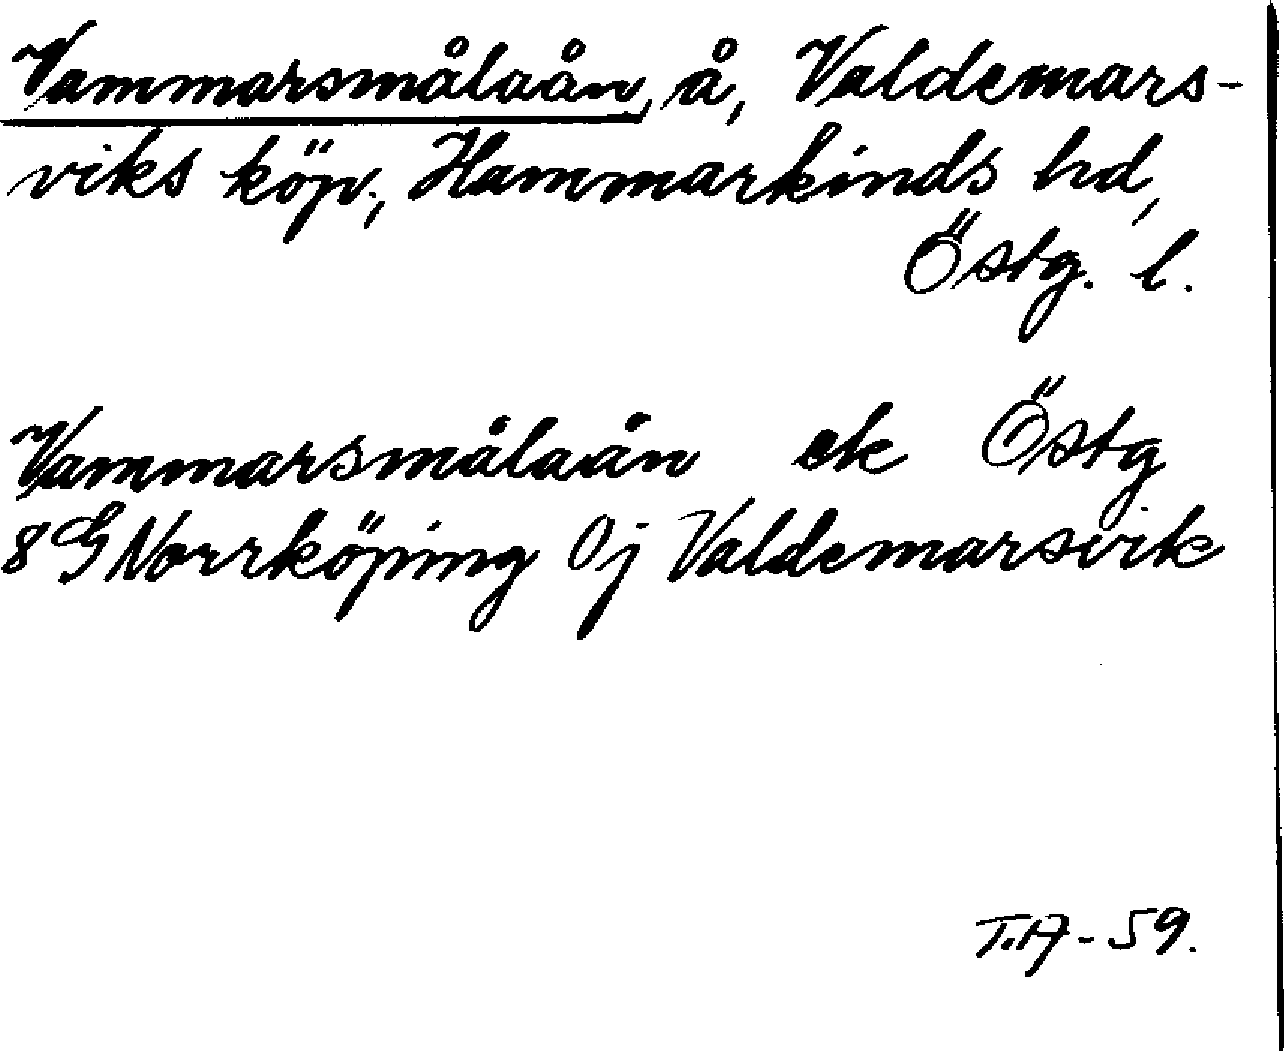 Vammarsmålaån, å, Valdemars-
viks köp., Hammarkinds hd,
Östg. l.
Vammarsmålaån ek Östg
8 G Norrköping Oj Valdemarsvik
T.A - 59.